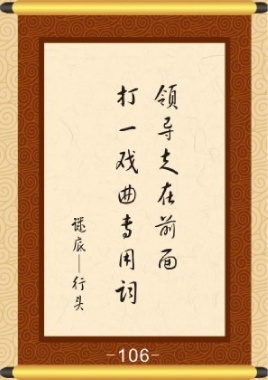 领导走在前面
打一戏曲专用词
谜底——行头
-106-